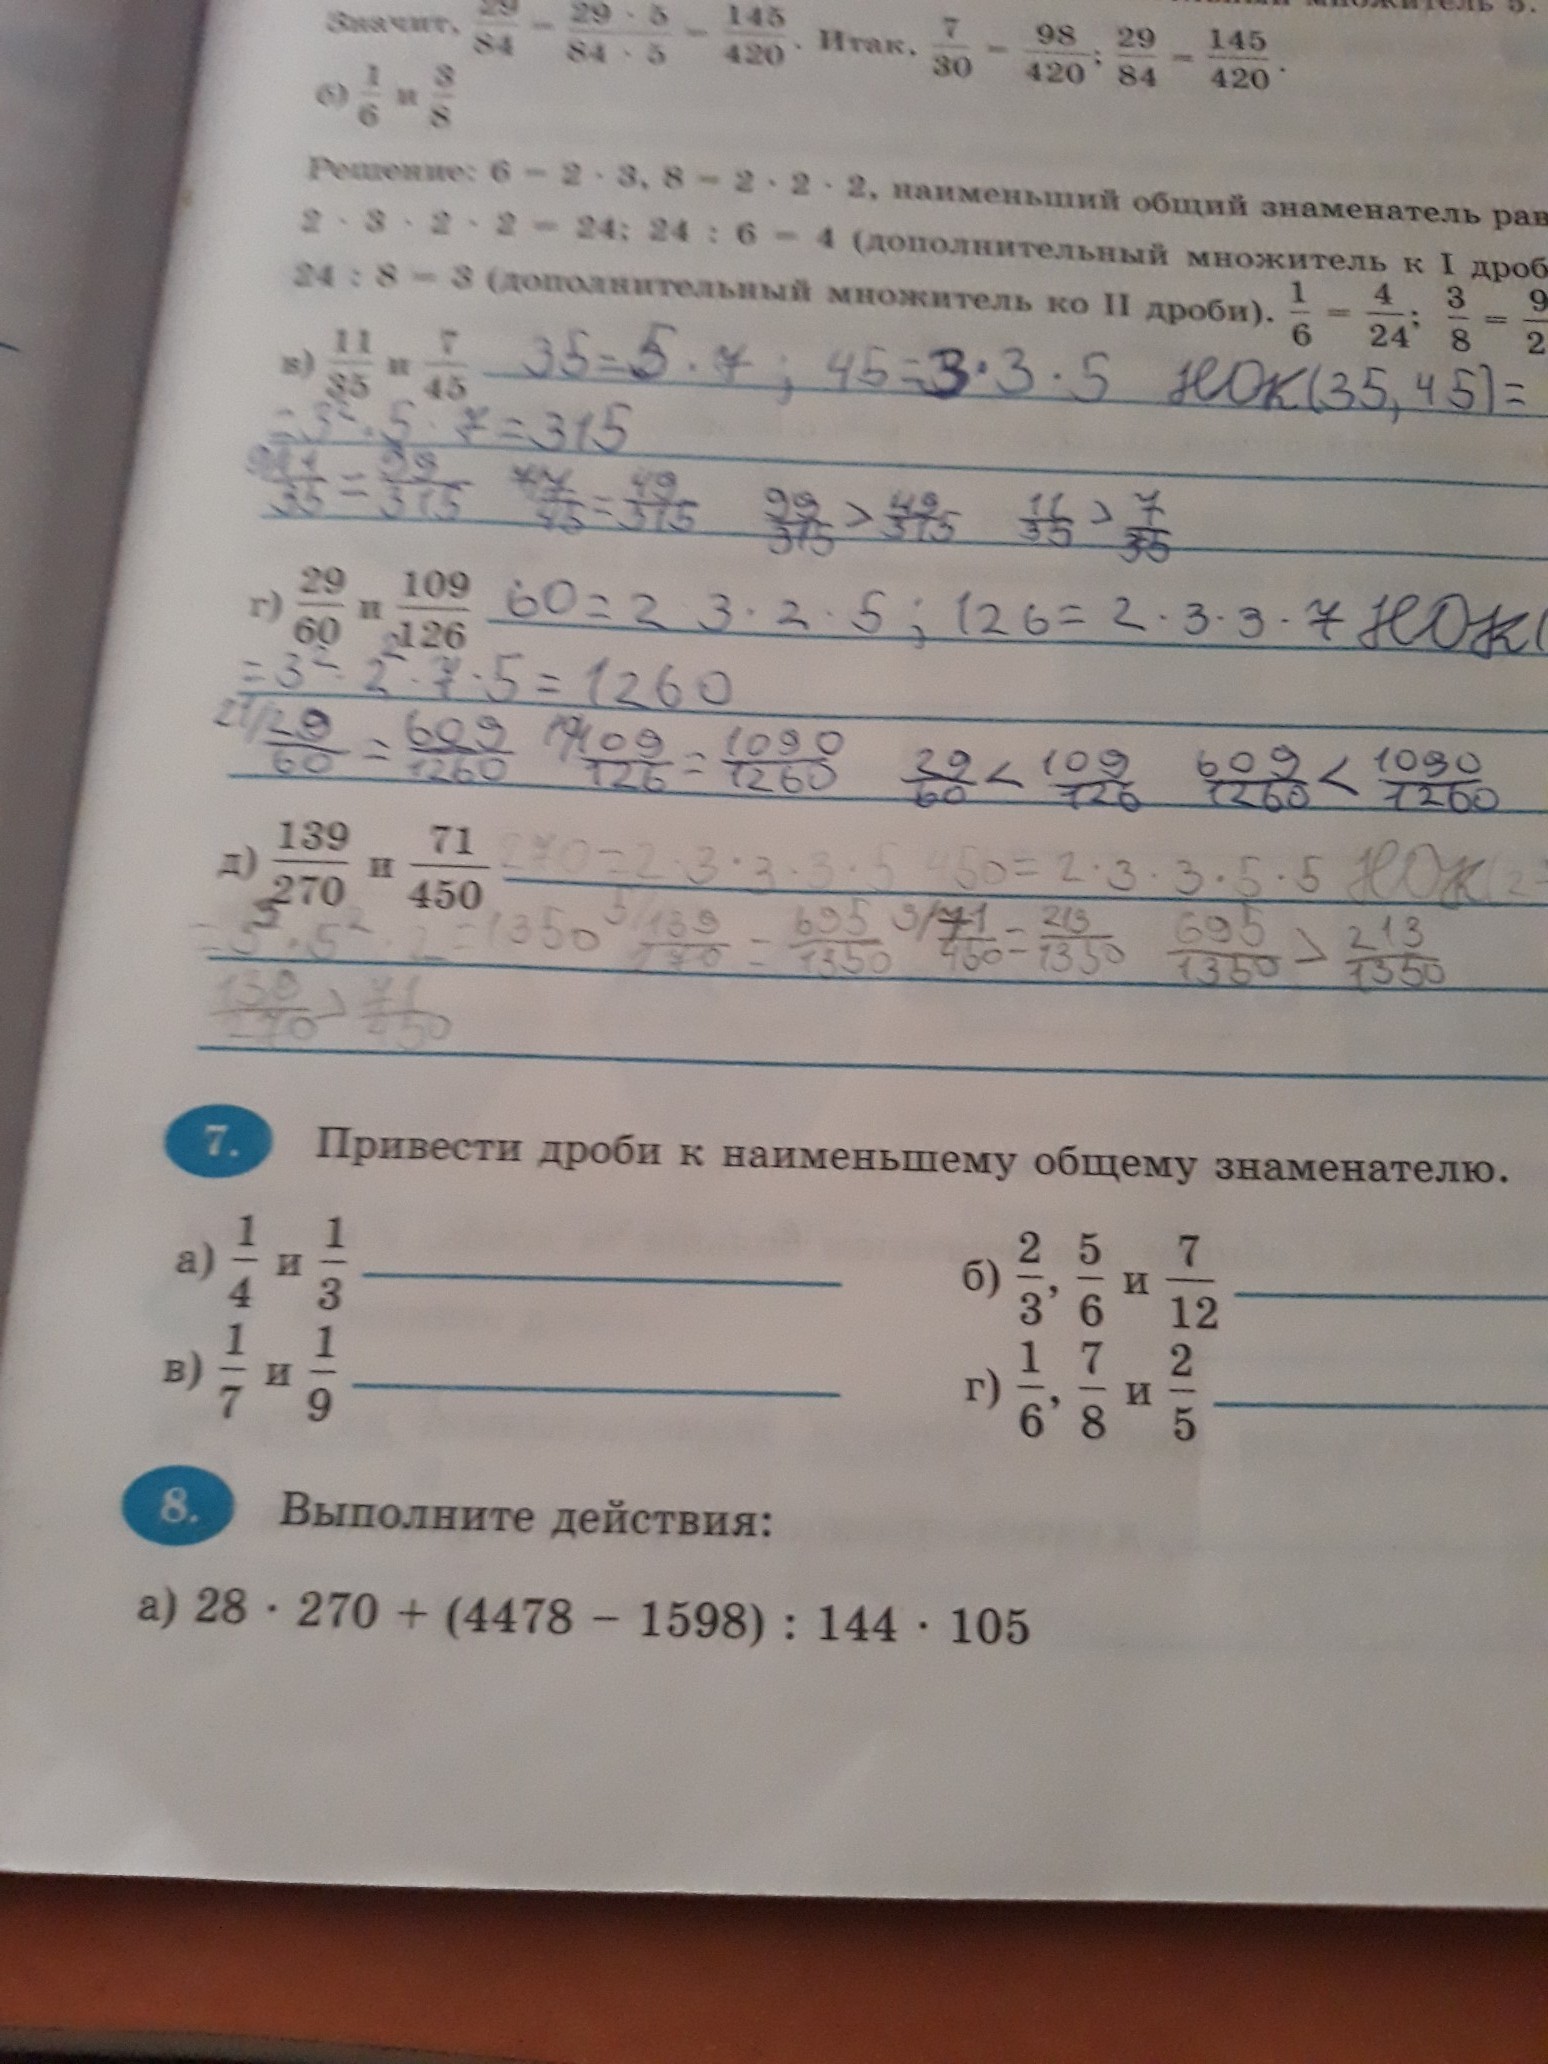 множитель 5.
Значит, 29/84 = 29 · 5/84 · 5 = 145/420. Итак, 7/30 = 98/420; 29/84 = 145/420.
б) 1/6 и 3/8
Решение: 6 = 2 · 3, 8 = 2 · 2 · 2, наименьший общий знаменатель рав
2 · 3 · 2 · 2 = 24; 24 : 6 = 4 (дополнительный множитель к I дроб
24 : 8 = 3 (дополнительный множитель ко II дроби). 1/6 = 4/24; 3/8 = 9/2
в) 11/35 и 7/45 35=5·7; 45=3·3·5 НОК(35,45)=
=3²·5·7=315
9/11/35=99/315 7/7/45=49/315 99/315>49/315 11/35>7/35
г) 29/60 и 109/126 60=2·3·2·5; 126=2·3·3·7 НОК(
=3²·2²·7·5=1260
21/29/60=609/1260 10/109/126=1090/1260 29/60<109/126 609/1260<1090/1260
д) 139/270 и 71/450 270=2·3·3·3·5 450=2·3·3·5·5 НОК(2
=3³·5²·2=1350 5/139/270=695/1350 3/71/450=213/1350 695/1350>213/1350
139/270>71/450
7. Привести дроби к наименьшему общему знаменателю.
а) 1/4 и 1/3 б) 2/3, 5/6 и 7/12
в) 1/7 и 1/9 г) 1/6, 7/8 и 2/5
8. Выполните действия:
а) 28 · 270 + (4478 − 1598) : 144 · 105